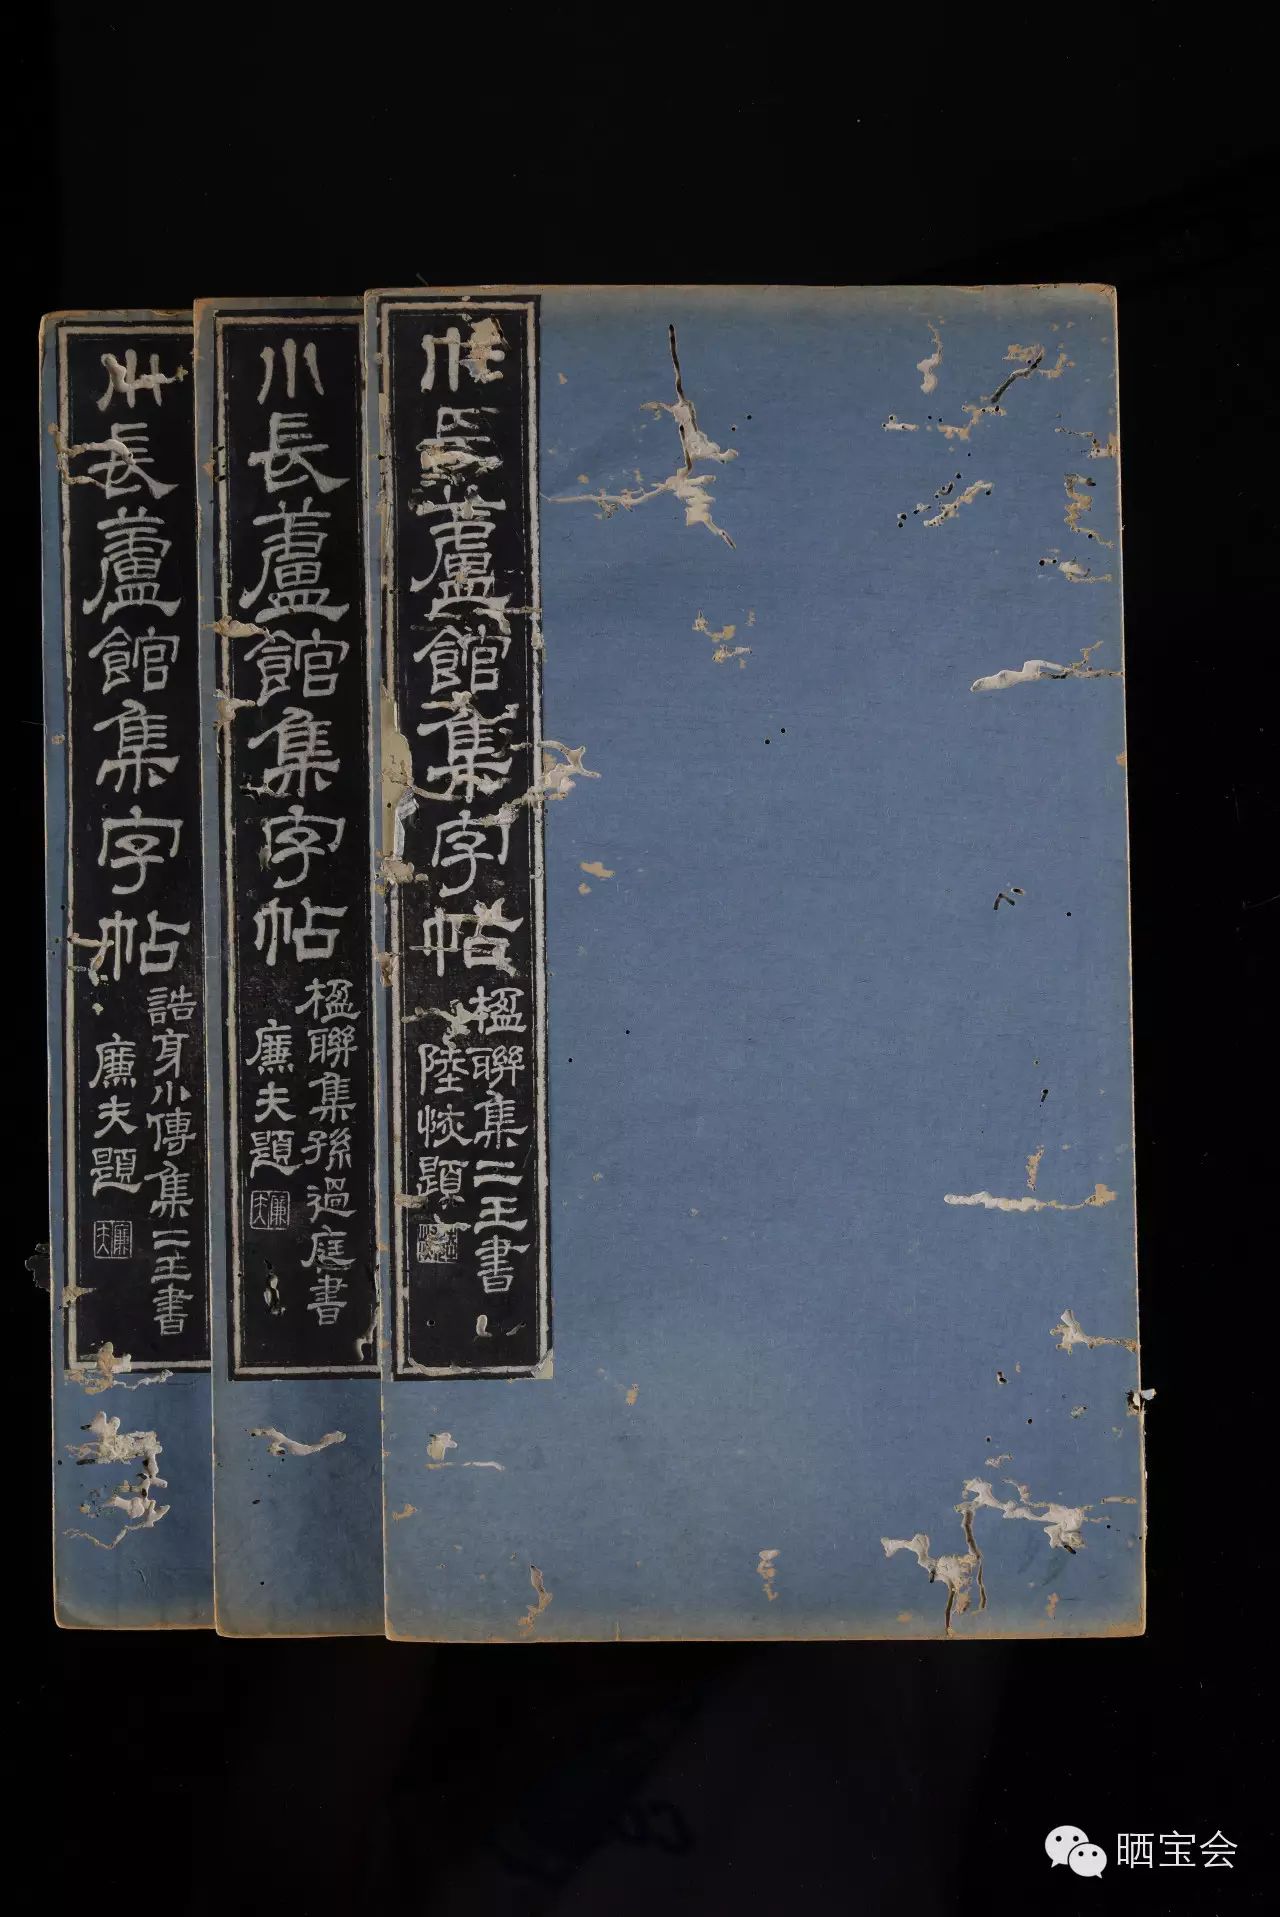 小長蘆館集字帖
楹聯集二王書
陸恢題
小長蘆館集字帖
楹聯集孫過庭書
廉夫題
廉夫
小長蘆館集字帖
誥身小傳集二王書
廉夫題
廉夫
晒宝会